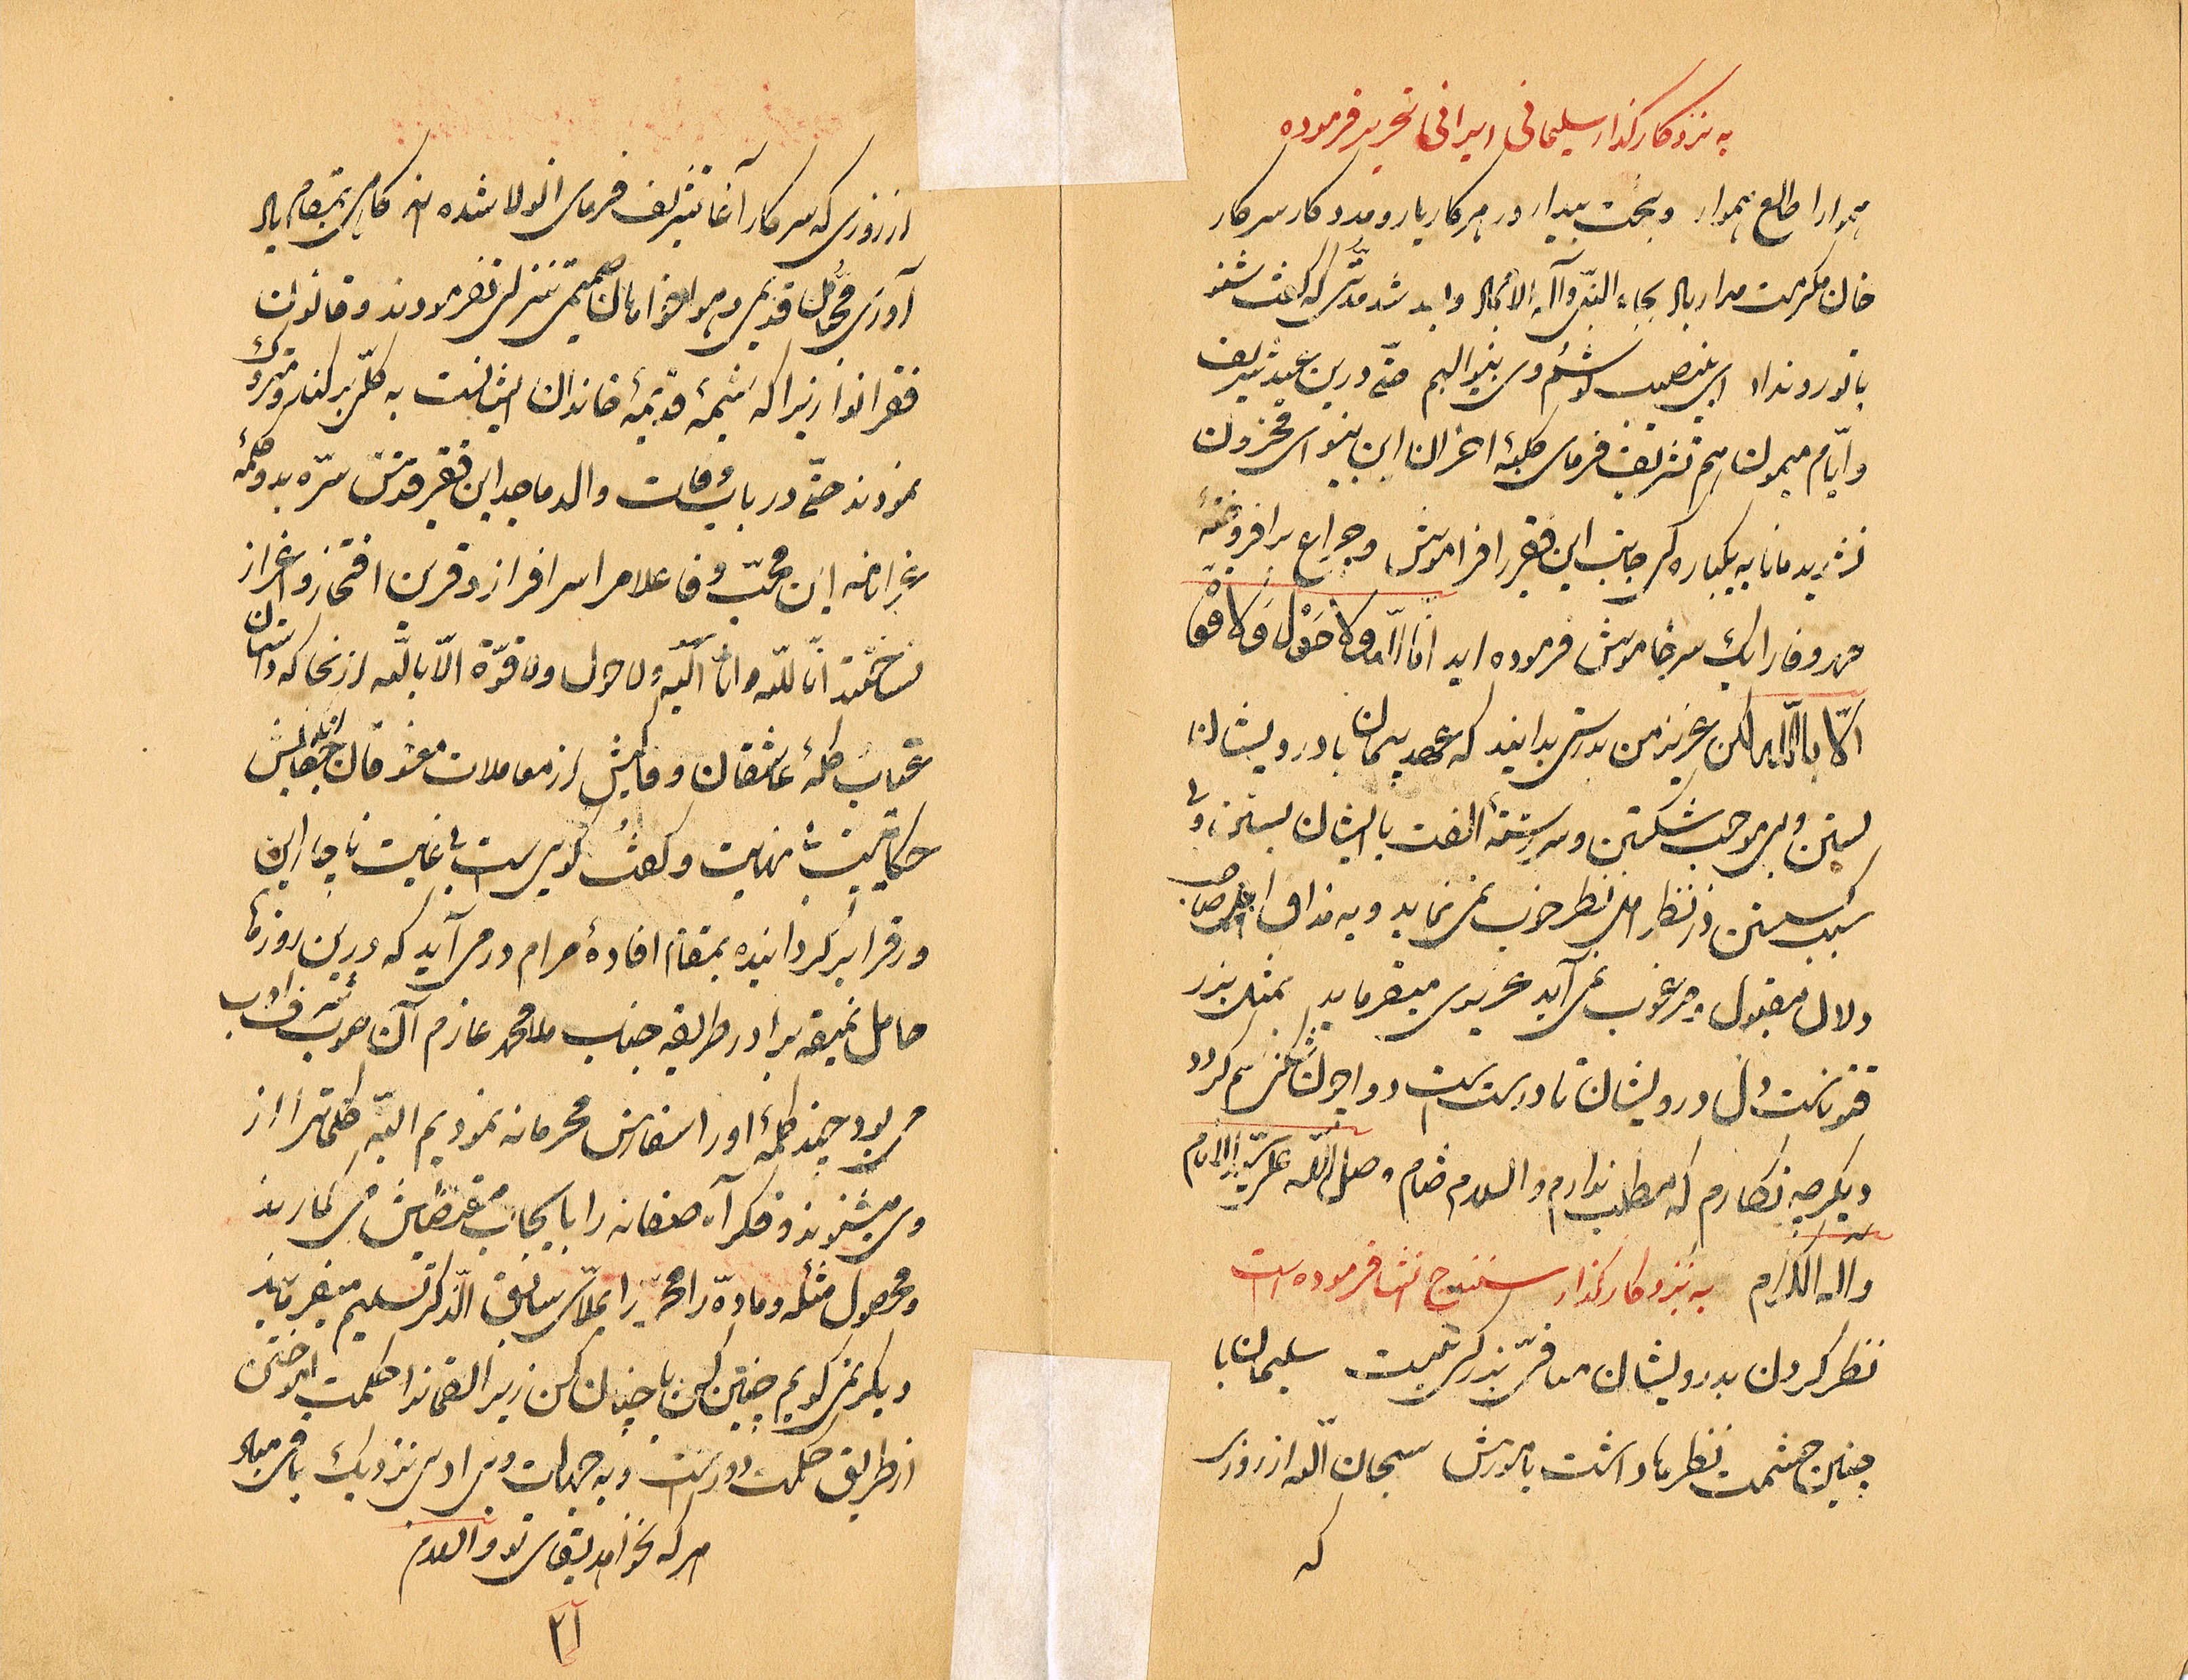 به نزد کارگذار سلیمانی ایرانی تحریر فرموده
همواره طالع هموار و بخت بیدار در هر کار یار و مددکار سرکار
خان مکرمت مدار باد بجاه النبی وآله الامجاد واید شد مدتی که گفت شنو
با نوروند اد این بی‌نصیب گوشم وی بینوا لبم حتی درین عید شریف
و ایام میمون هم تشریف فرمای کلبهٔ احزان این بینوای محزون
نشدید مانا به یکباره‌گی جانب این فقیر را فراموش و چراغ برافروختهٔ
مهر و وفا را یک سر خاموش فرموده اید انا لله ولا حول ولا قوة
الا بالله لکن عزیز من بدرستی بدانید که عهد و پیمان با درویشان
بستن و بی موجب شکستن و سررشتهٔ الفت با ایشان بستن و بی
سبب گسستن در نظر اهل نظر خوب نمی‌نماید و به مذاق اهل صاحب
دلان مقبول و مرغوب نمی‌آید عزیزی میفرماید بمثل بذر
قنوتست دل درویشان تا درست است دوا چون شکنی سم گردد
دیگر چه نگارم که مطلب ندارم والسلام ختام وصلی الله علی سید الانام
واله الکرام به نزد کارگذار سنندج انشا فرموده است
نظر کردن بدرویشان منافی بزرگی نیست سلیمان با
چنین حشمت نظرها داشت با مورش سبحان الله از روزی
که
از روزی که سرکار آغا تشریف فرمای انولا شده اند گاهی بمقام یاد
آوری مخلصان قدیمی و هواخواهان صمیمی تنزل نفرمودند و قانون
فقرانوازی را که شیمهٔ قدیمهٔ خاندان ایشانست به کلی برکنار و متروک
نمودند حتی در باب وفات والد ماجد این فقیر قدس سره بدو کلمه
عزانامه این محب وفا علامر را سرافراز و قرین افتخار و اعزاز
نساختند انا لله وانا الیه ولا حول ولا قوة الا بالله از آنجا که داستان
عتاب و گلهٔ عاشقان وفاکیش از معاملات معشوقان جفااندیش
حکایتیست بی نهایت و گفت گویی است بی غایت ناچار این
ورق را برگردانیده بمقام افادهٔ مرام درمی‌آید که درین روزها
حامل نمیقه برادر طریقه جناب ملا محمد عازم آن صوب شرف ادب
می بود چند کلمهٔ او را سفارش محرمانه نمودیم البته کلمات را از
وی میشنوند و فکر آصفانه را بایجاب مقتضایش می گمارند
ومحصول مثله و ماده را محرر ایملای سابق الذکر تسلیم میفرمایند
دیگر نمی‌گویم چنین کن یا چنان کن زیرا لقمان را حکمت آموختن
از طریق حکمت دور است و به جهالت و بی ادبی نزدیک باقی مباد
هرکه نخواهد بقای تو والسلام
۲۱